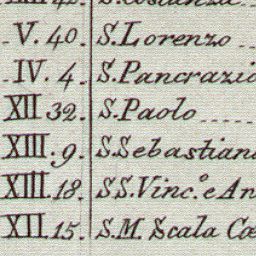 V. 40. S. Lorenzo
IV. 4. S. Pancrazio
XII 32. S. Paolo
XIII. 9. S. Sebastiano
XIII. 18. S S. Vinc.º e An
XII. 15. S. M. Scala Cœ